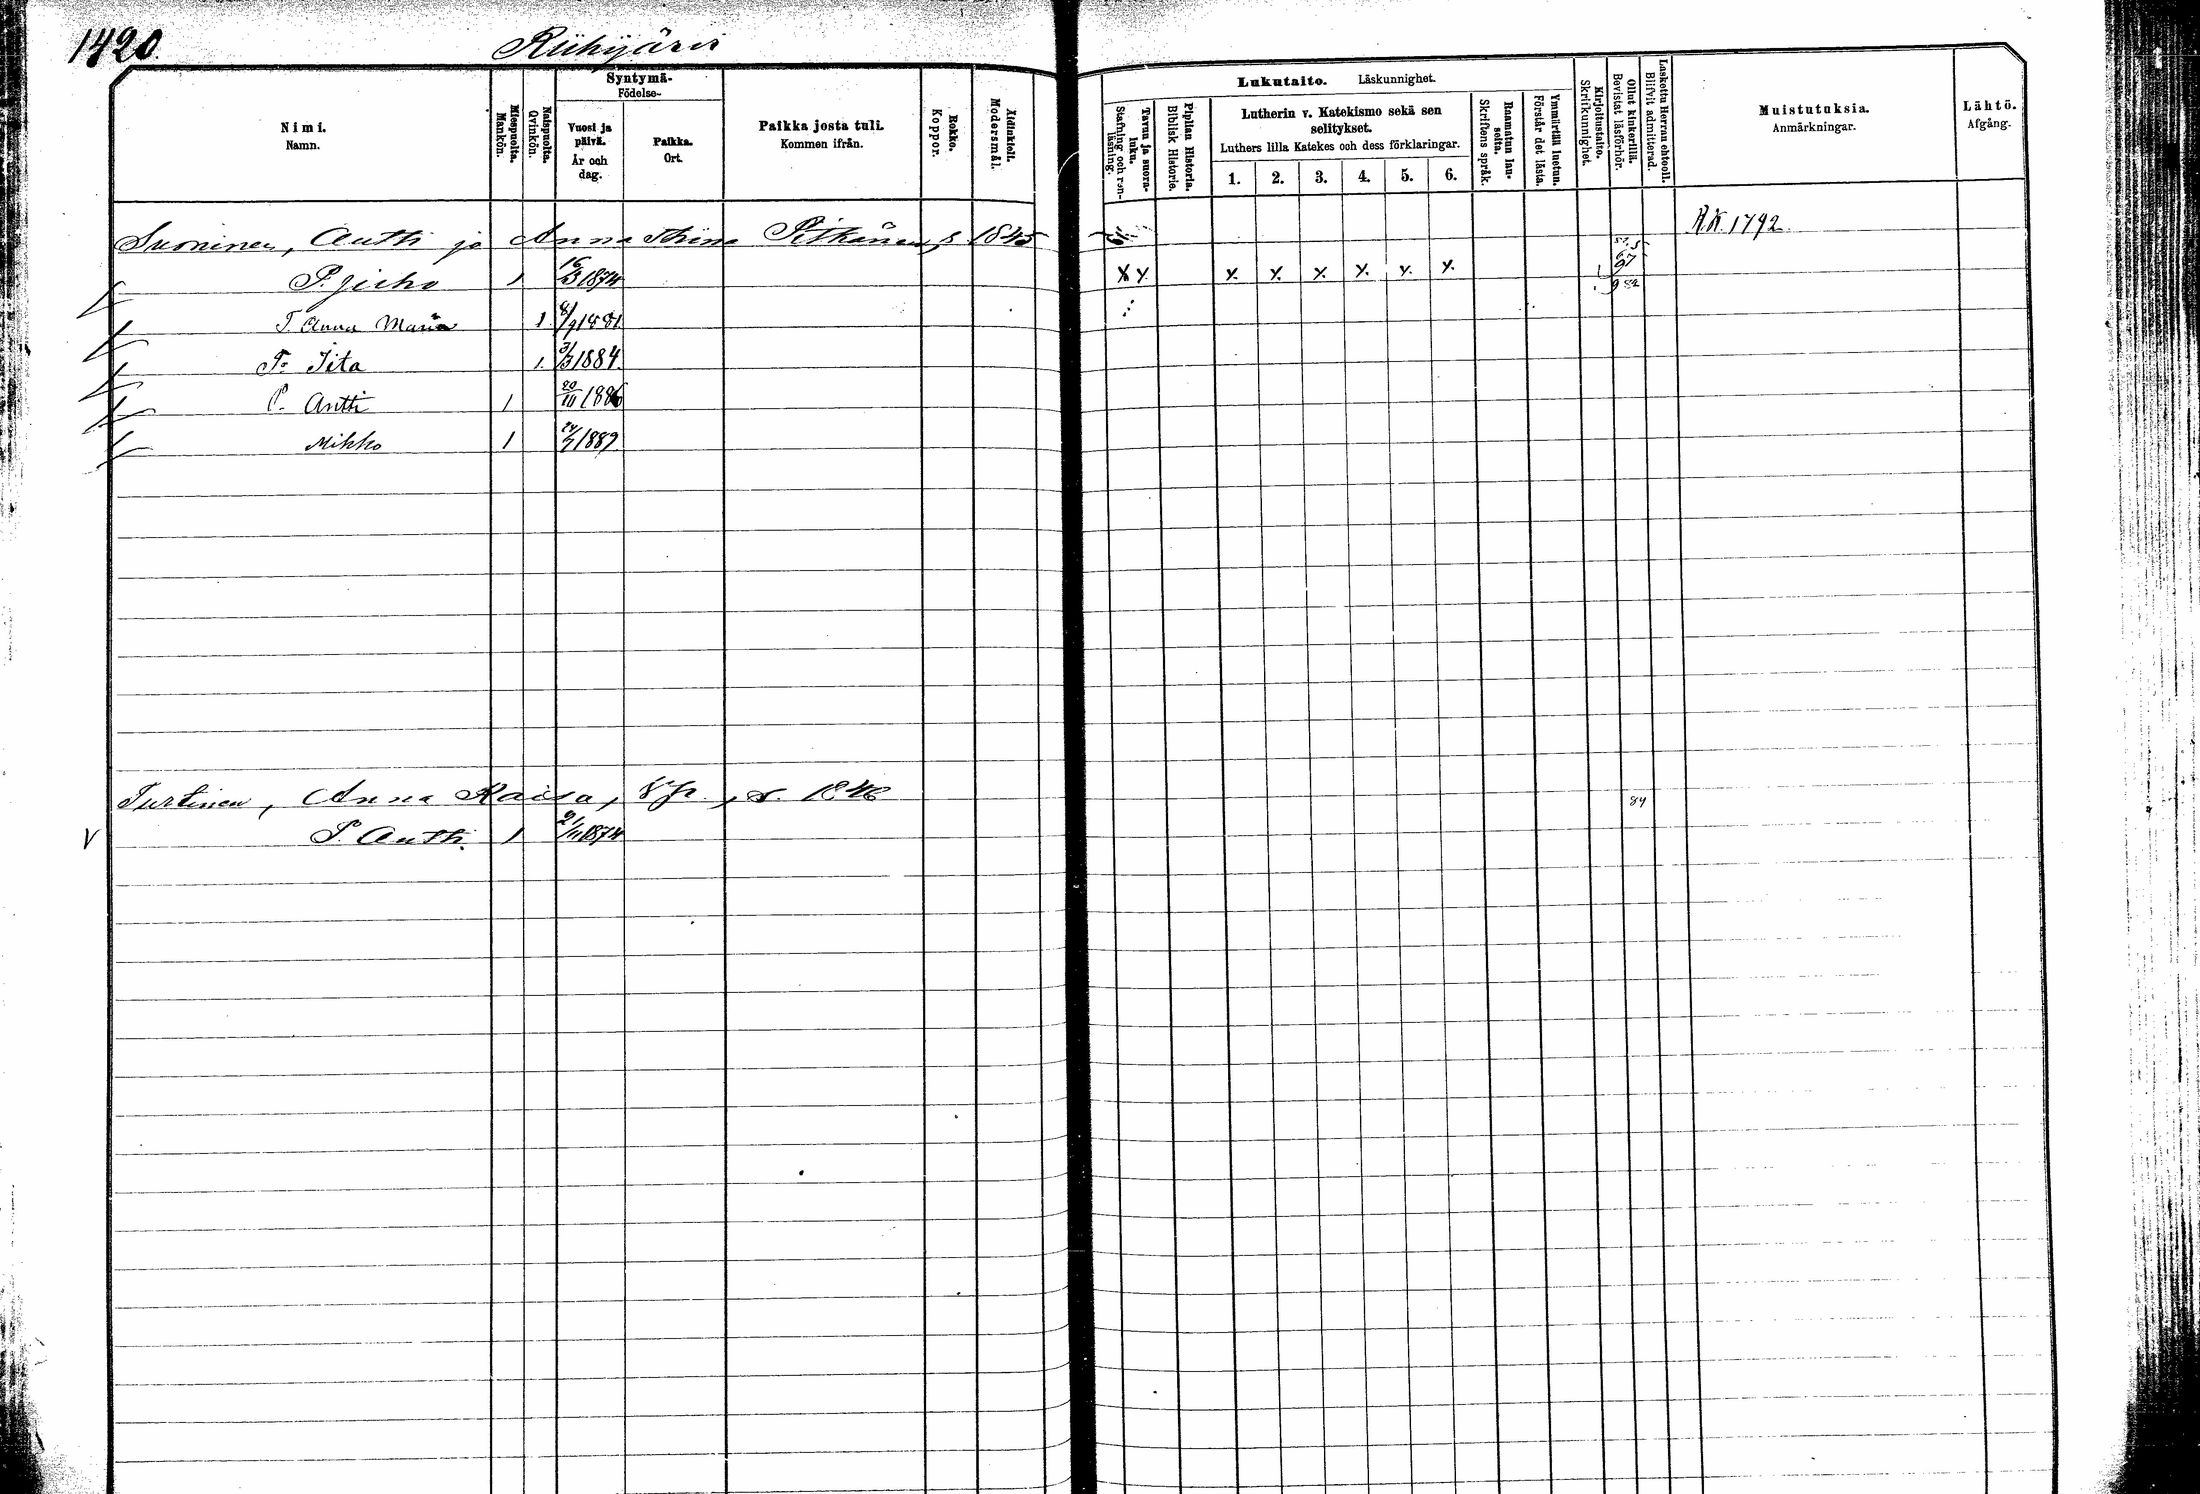 1420.
Riihijärvi
Nimi.
Namn.
Miespuolia.
Mankön.
Naispuolia.
Qvinkön.
Syntymä-
Födelse-
Vuosi ja päivä.
År och dag.
Paikka.
Ort.
Paikka josta tuli.
Kommen ifrån.
Rokko.
Koppor.
Äidinkieli.
Modersmål.
Lukutaito. Läskunnighet.
Tavuu ja suora-luku.
Stafning och ren-läsning.
Piplian Historia.
Biblisk Historie.
Lutherin v. Katekismo sekä sen
selitykset.
Luthers lilla Katekes och dess förklaringar.
1. 2. 3. 4. 5. 6.
Raamatun lau-seita.
Skriftens språk.
Ymmärtää luetun.
Förstår det lästa.
Kirjoitustaito.
Skrifkunnighet.
Ollut kinkerillä.
Bevistat läsförhör.
Laskettu Herran ehtooll.
Blifvit admitterad.
Muistutuksia.
Anmärkningar.
Lähtö.
Afgång.
Suoninen, Antti ja Anna Stiina Pitkänen, s. 1845 R.K. 1792
P. Juho 1 16/3 1874 x y. y. y. y. y. y. y. 97
T. Anna Maria 1 8/9 1881
T. Iita 1. 3/3 1884.
P. Antti 1 20/10 1886
Mikko 1 24/7 1889.
Turtinen, Anna Kaisa, s. 1846 84
P. Antti. 1 21/11 1874